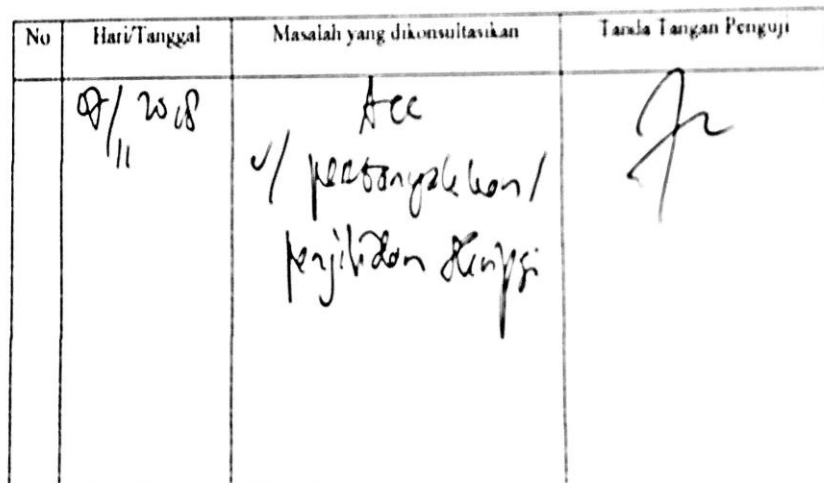 No Hari/Tanggal Masalah yang dikonsultasikan Tanda Tangan Penguji
/11 2018
Acc
u/ perbanyakkan/
penjilidan skripsi